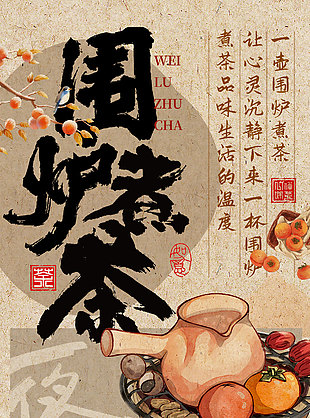 围炉煮茶
WEI
LU
ZHU
CHA
一壶围炉煮茶
让心灵沉静下来一杯围炉
煮茶品味生活的温度
茶
夜